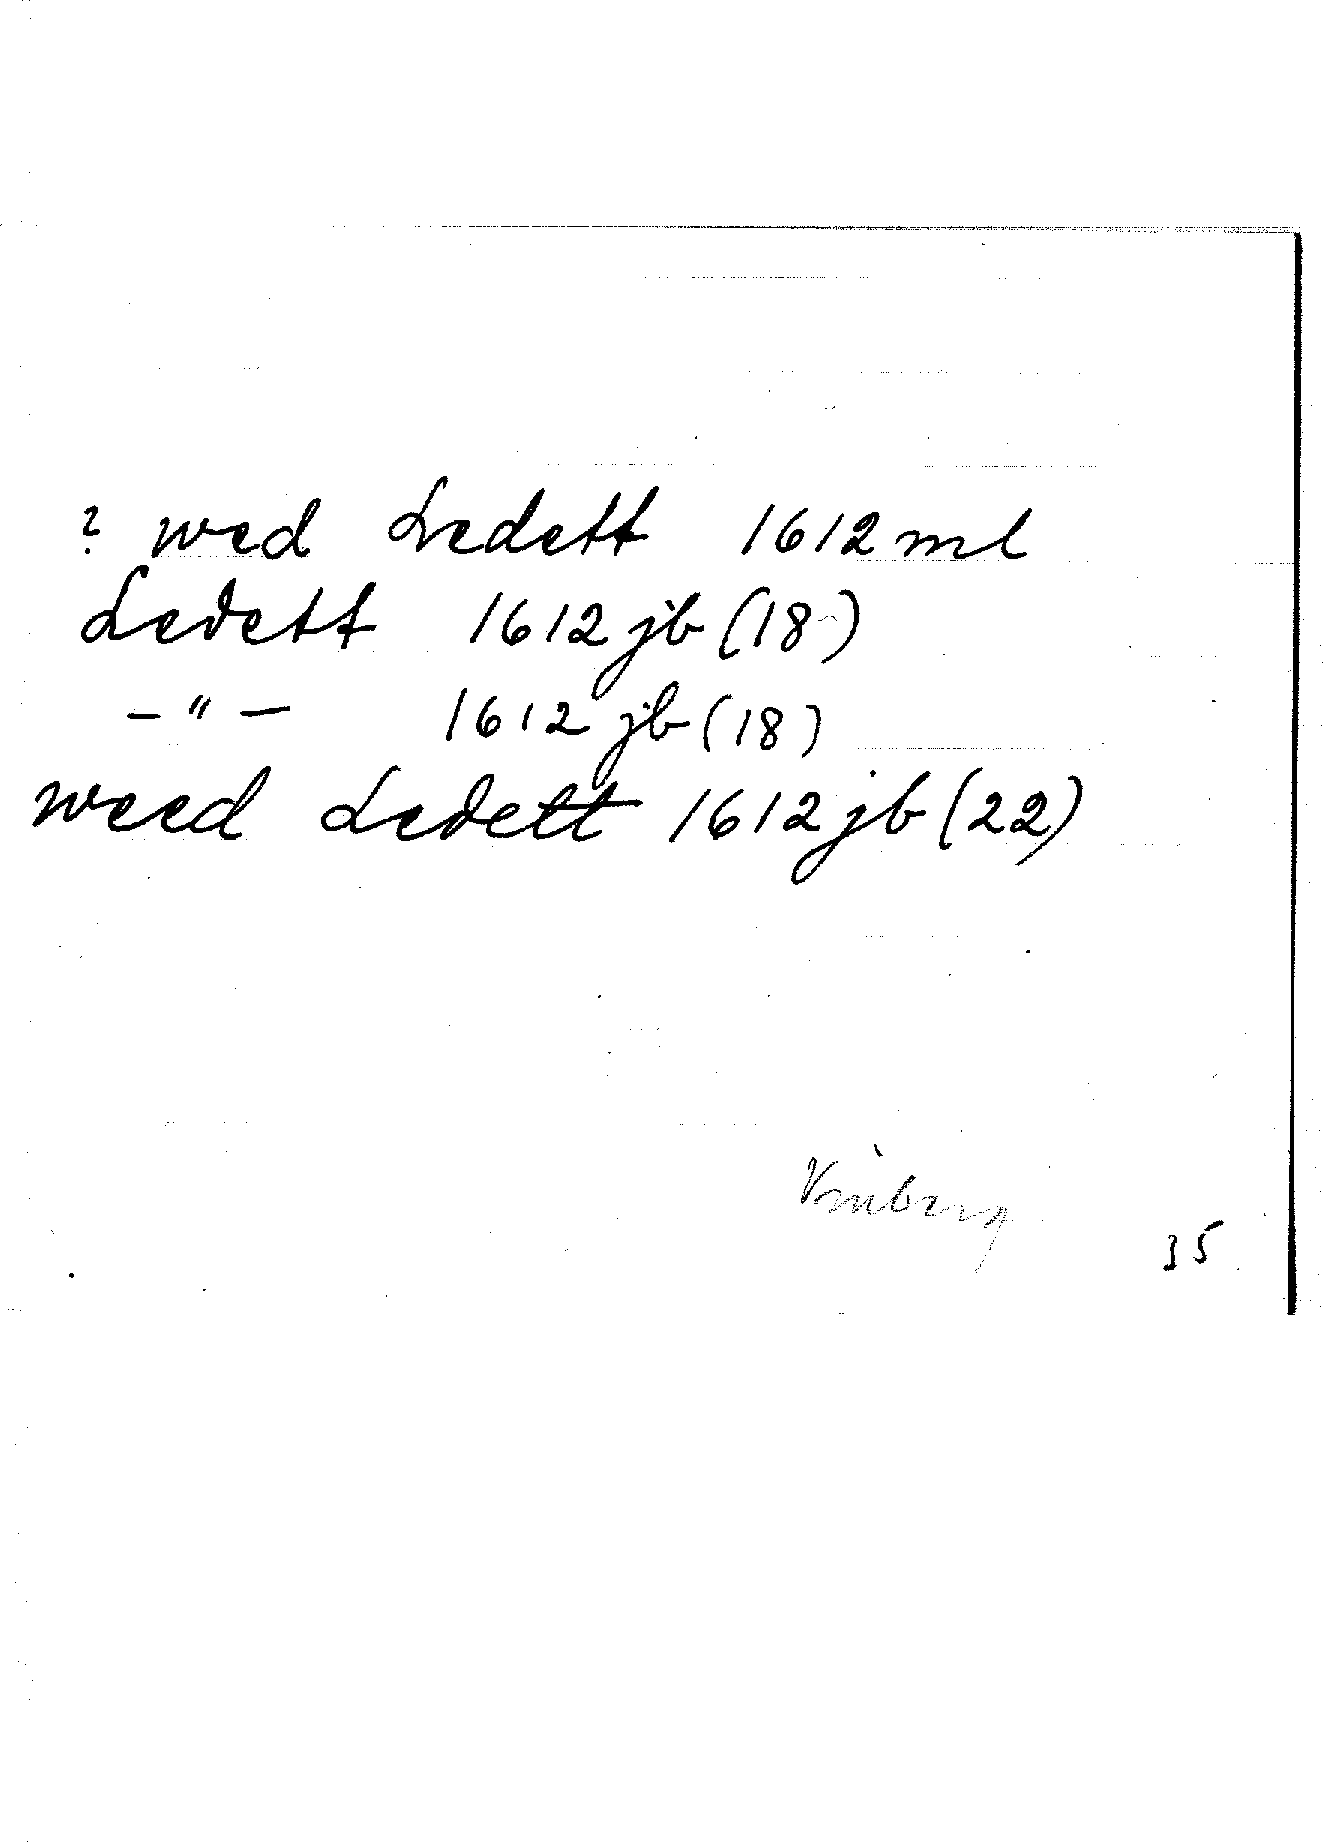 ? wed Ledett 1612 ml
Ledett 1612 jb (18)
— " — 1612 jb (18)
weed Ledett 1612 jb (22)
Vinberg
35